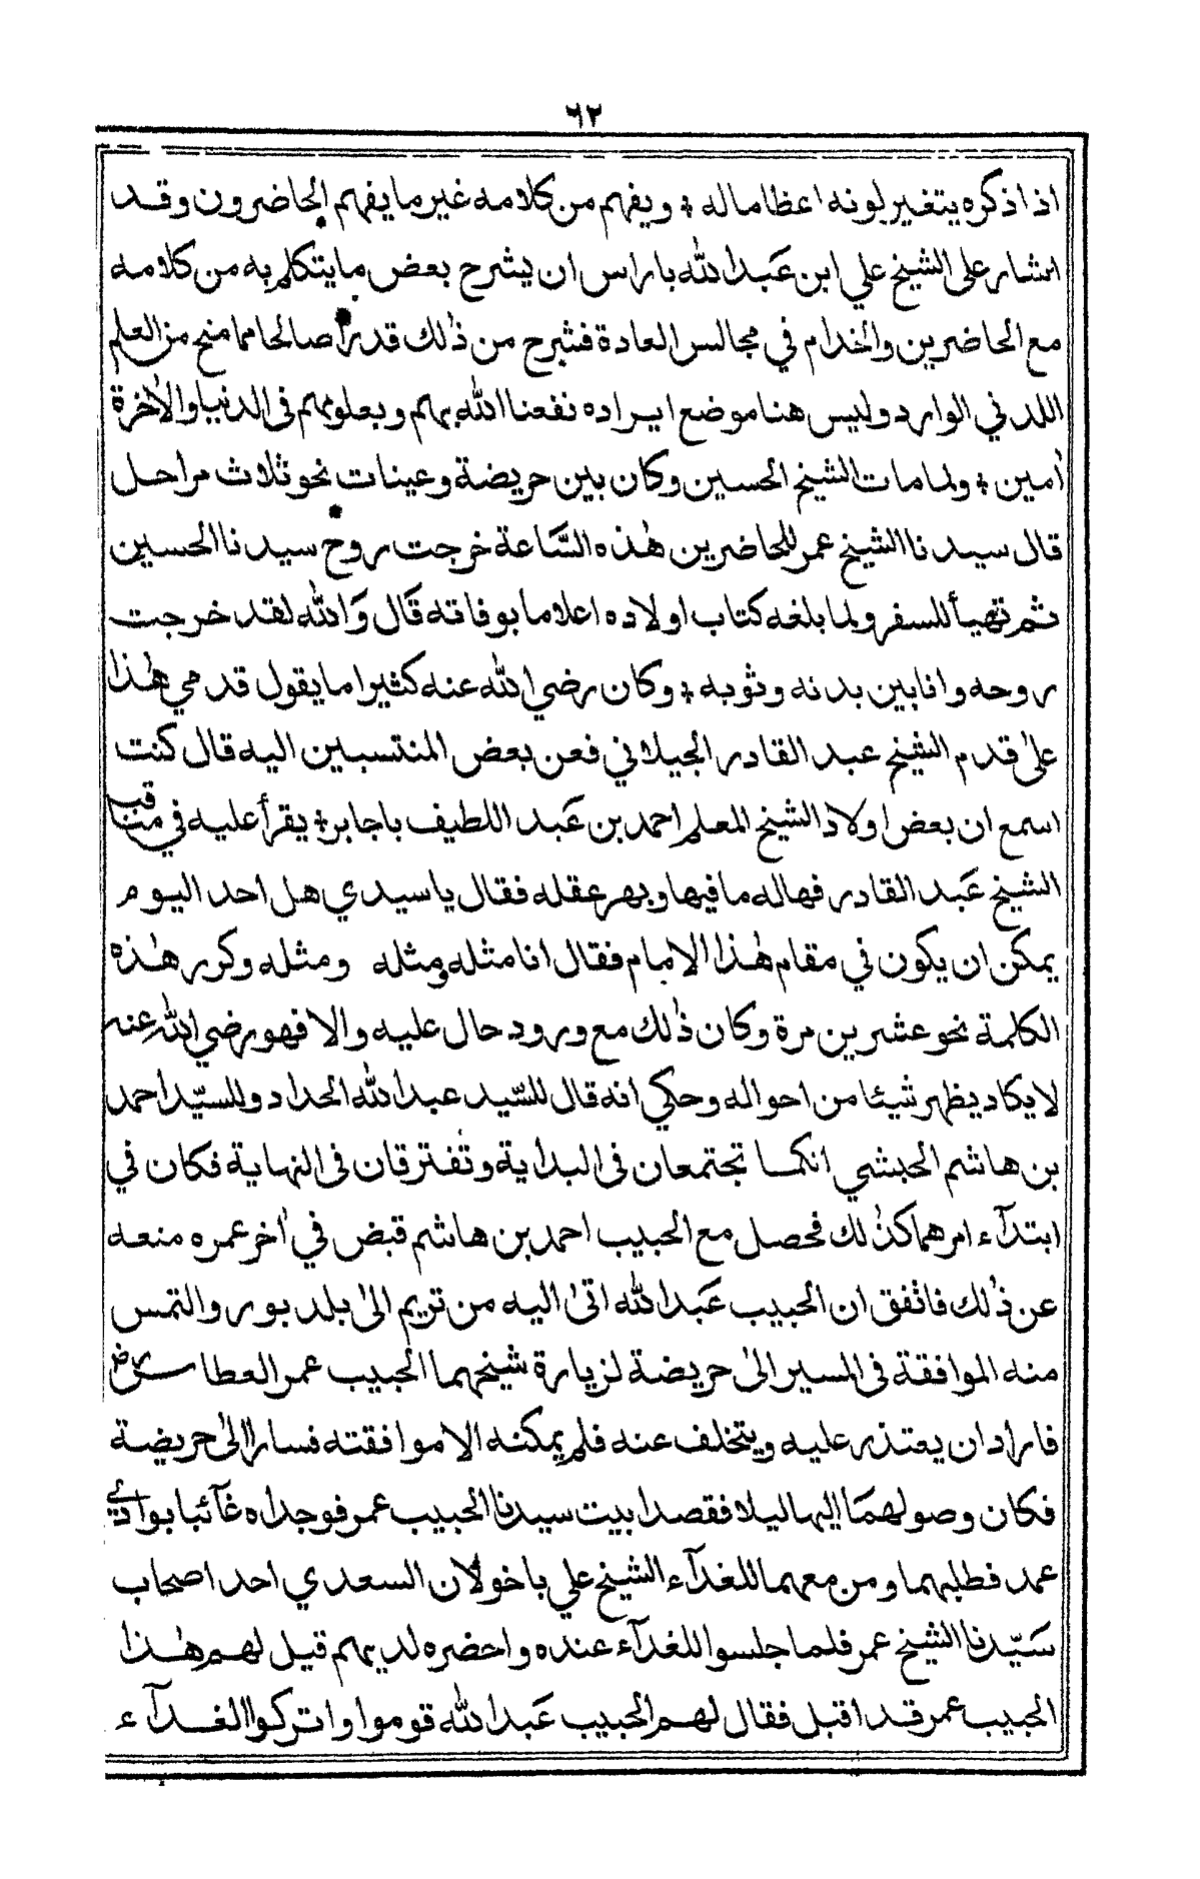 ٦٢
اذا ذكره يتغير لونه اعظاما له ؛ ويفهم من كلامه غير ما يفهم الحاضرون وقد
اشار على الشيخ علي ابن عَبد الله باراس ان يشرح بعض ما يتكلم به من كلامه
مع الحاضرين والخدام في مجالس العادة فشرح من ذٰلك قدرا صالحا مما منح من العلم
اللدني الوارد وليس هنا موضع ايراده نفعنا الله بهم وبعلومهم فى الدنيا والاٰخرة
اٰمين ؛ ولما مات الشيخ الحسين وكان بين حريضة وعينات نحو ثلاث مراحل
قال سيدنا الشيخ عمر للحاضرين هٰذه السَّاعة خرجت روح سيدنا الحسين
ثم تهيأ للسفر ولما بلغه كتاب اولاده اعلاما بوفاته قَال وَالله لقد خرجت
روحه وانا بين بدنه وثوبه ؛ وكان رضي الله عنه كثيرا ما يقول قدمي هٰذا
علىٰ قدم الشيخ عبد القادر الجيلاني فعن بعض المنتسبين اليه قال كنت
اسمع ان بعض اولاد الشيخ المعلم احمد بن عَبد اللطيف باجابر ؛ يقرأ عليه في مناقب
الشيخ عَبد القادر فهاله ما فيها وبهر عقله فقال يا سيدي هل احد اليوم
يمكن ان يكون في مقام هٰذا الامام فقال انا مثله ومثله ومثله وكرر هٰذه
الكلمة نحو عشرين مرة وكان ذٰلك مع ورود حال عليه والا فهو رضي الله عنه
لا يكاد يظهر شيئا من احواله وحكي انه قال للسّيد عبد الله الحداد وللسيّد احمد
بن هاشم الحبشي انكما تجتمعان فى البداية وتفترقان فى النهاية فكان في
ابتدآء امرهما كذٰلك فحصل مع الحبيب احمد بن هاشم قبض في اٰخر عمره منعه
عن ذٰلك فاتفق ان الحبيب عَبد الله اتىٰ اليه من تريم الىٰ بلد بور والتمس
منه الموافقة فى المسير الىٰ حريضة لزيارة شيخهما الحبيب عمر العطاس رض
فاراد ان يعتذر عليه ويتخلف عنه فلم يمكنه الا موافقته فسارا الىٰ حريضة
فكان وصولهمَا اليها ليلا فقصدا بيت سيدنا الحبيب عمر فوجداه غآئبا بوادي
عمد فطلبهما ومن معهما للغدآء الشيخ علي باخولان السعدي احد اصحاب
سَيّدنا الشيخ عمر فلما جلسوا للغدآء عنده واحضره لديهم قيل لهم هٰذا
الحبيب عمر قد اقبل فقال لهم الحبيب عَبد الله قوموا واتركوا الغدآء